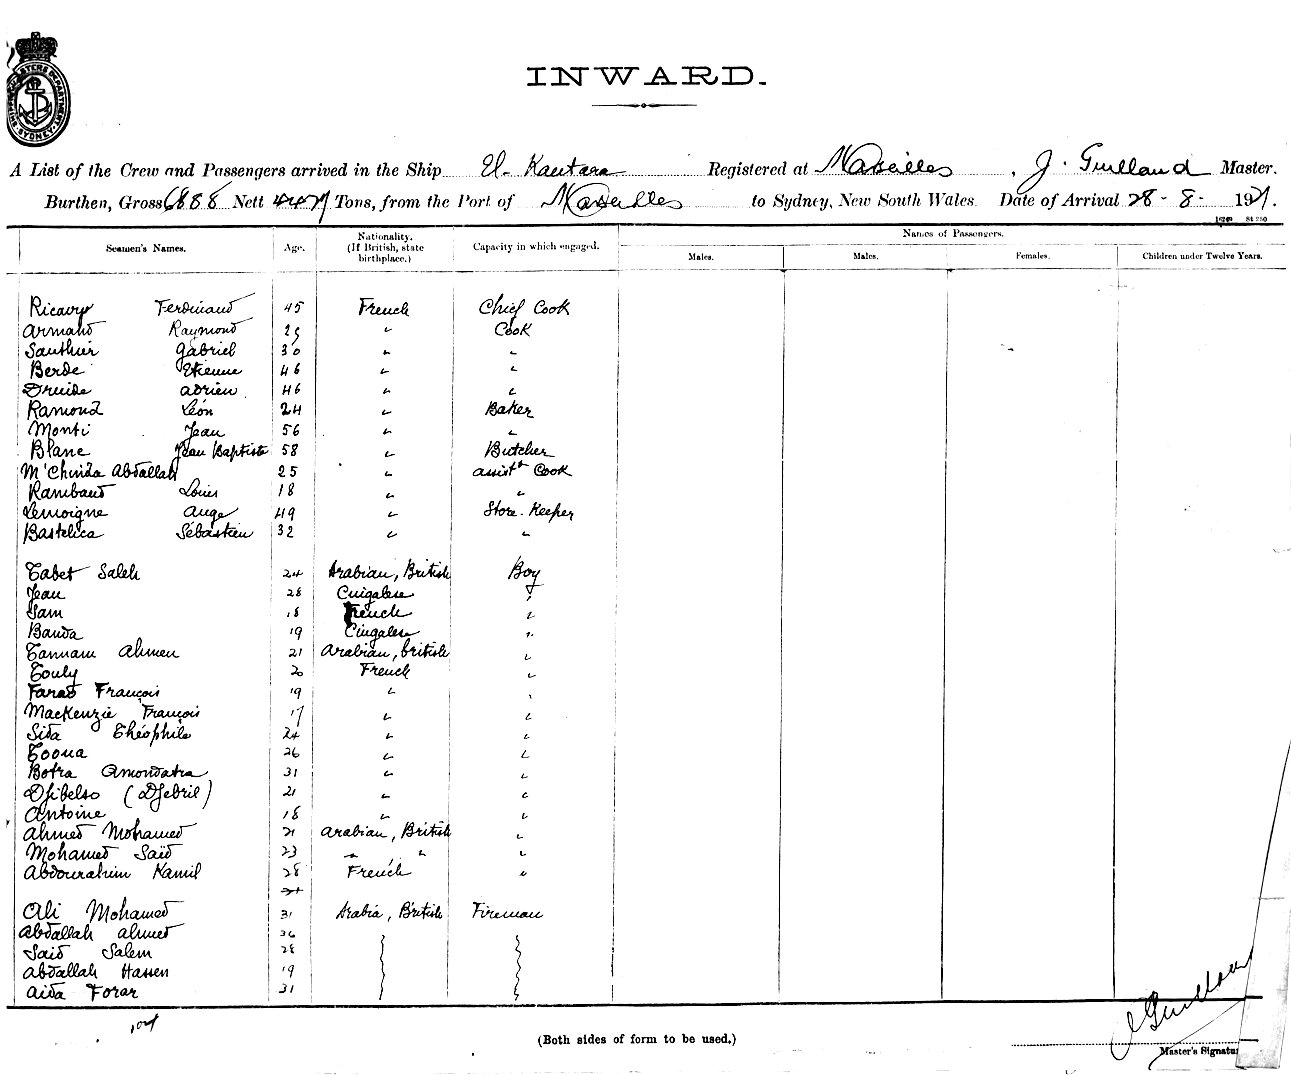 SHIPPING MASTERS DEPARTMENT SYDNEY
INWARD.
A List of the Crew and Passengers arrived in the Ship El-Kantara Registered at Marseilles, J. Guilland Master.
Burthen, Gross 6888 Nett 4457 Tons, from the Port of Marseilles to Sydney, New South Wales Date of Arrival 28-8-1921.
Seamen's Names. Age. Nationality. (If British, state birthplace.) Capacity in which engaged. Names of Passengers.
Males. Males. Females. Children under Twelve Years.
Ricavy Ferdinand 45 French Chief Cook
Armand Raymond 25 " Cook
Sauthier Gabriel 30 " "
Berde Etienne 46 " "
Druide Adrien 46 " "
Ramond Léon 24 " Baker
Monti Jean 56 " "
Blanc Jean Baptiste 58 " Butcher
M'Chinda Abdallah 25 " assist^t Cook
Rambaud Louis 18 " "
Lemoigne Ange 49 " Store-Keeper
Bastelica Sébastien 32 " "
Tabet Saleh 24 Arabian, British Boy
Jean 28 Cingalese "
Sam 18 French "
Banda 19 Cingalese "
Tannam Ahmen 21 Arabian, british "
Touly 20 French "
Farad François 19 " "
MacKenzie François 17 " "
Sida Théophile 24 " "
Tooua 26 " "
Botra Amondatra 31 " "
Djibelso (Djebril) 21 " "
Antoine 18 " "
Ahmed Mohamed 21 Arabian, British "
Mohamed Saïd 23 " " "
Abdourahim Kamil 28 French "
Ali Mohamed 31 Arabia, British Fireman
Abdallah Ahmed 36
Saïd Salem 28
Abdallah Hassen 19
Aida Forar 31
(Both sides of form to be used.)
J Guilland
Master's Signatu